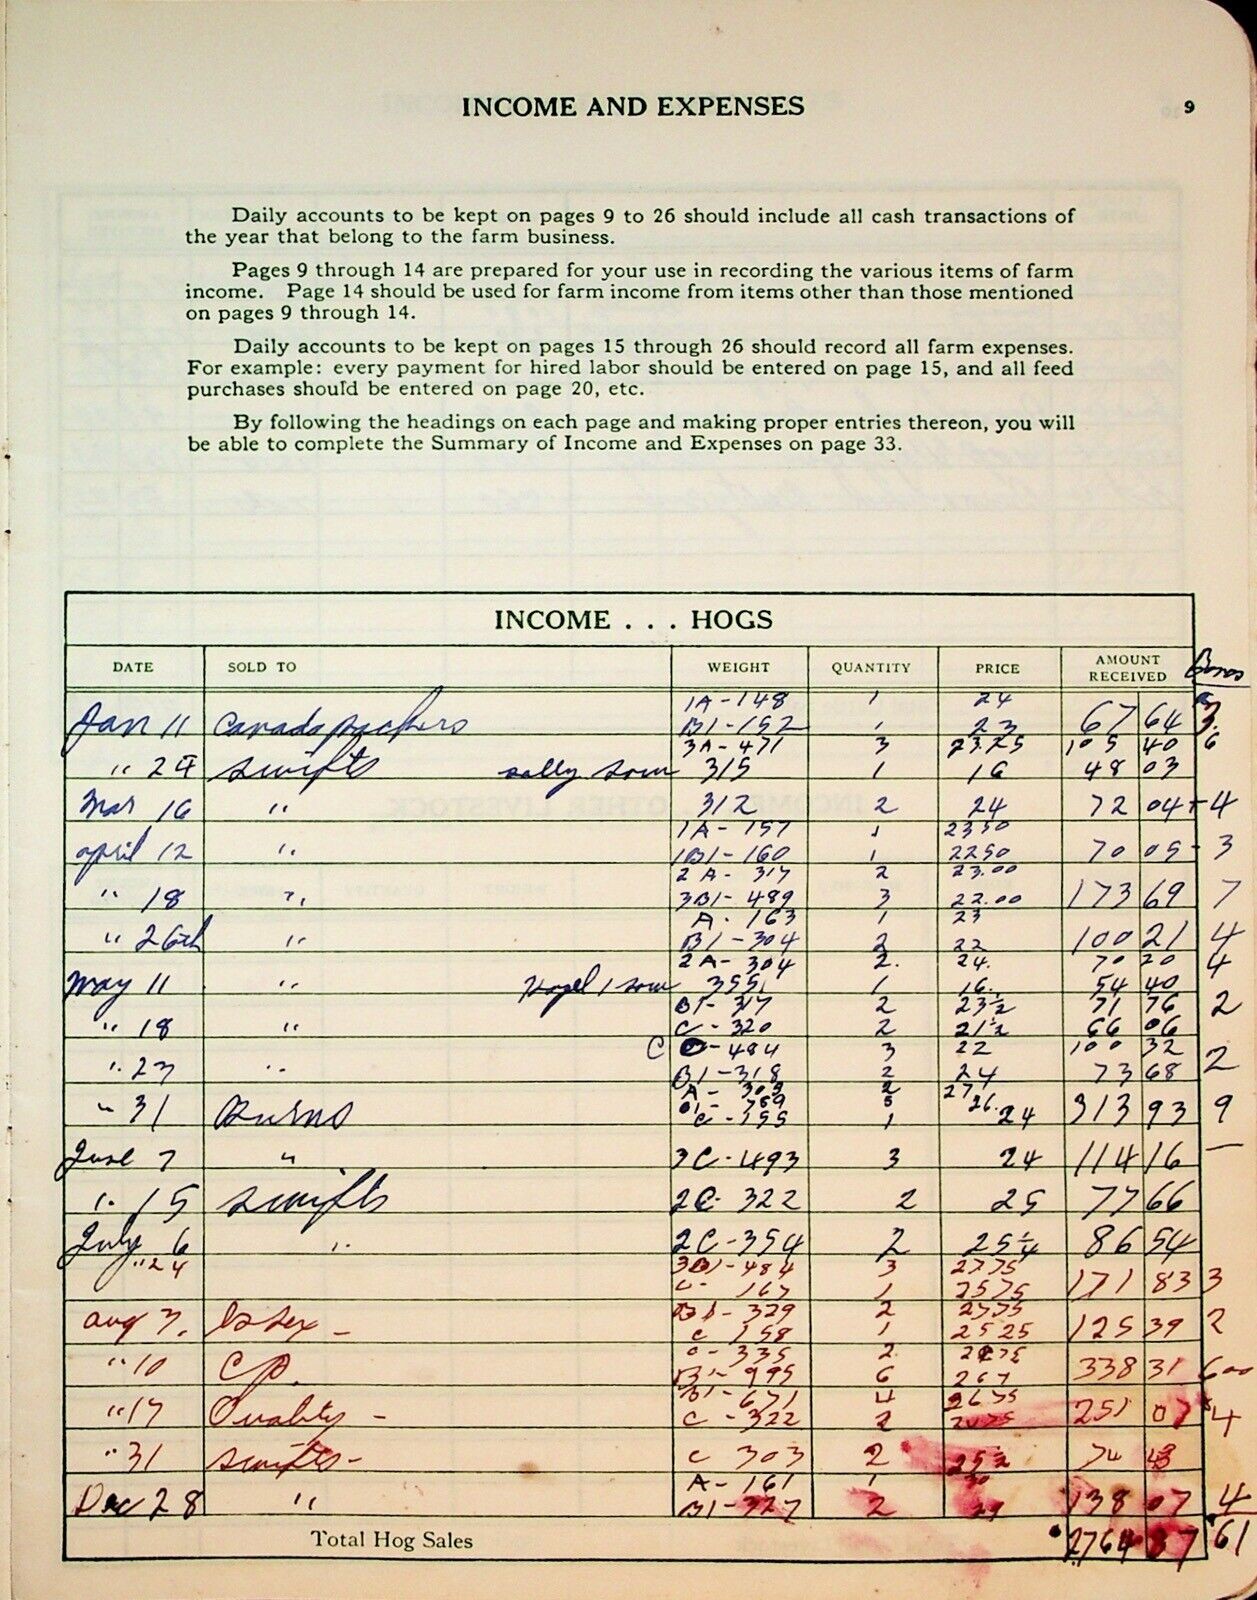 INCOME AND EXPENSES
9
Daily accounts to be kept on pages 9 to 26 should include all cash transactions of
the year that belong to the farm business.
Pages 9 through 14 are prepared for your use in recording the various items of farm
income. Page 14 should be used for farm income from items other than those mentioned
on pages 9 through 14.
Daily accounts to be kept on pages 15 through 26 should record all farm expenses.
For example: every payment for hired labor should be entered on page 15, and all feed
purchases should be entered on page 20, etc.
By following the headings on each page and making proper entries thereon, you will
be able to complete the Summary of Income and Expenses on page 33.
INCOME . . . HOGS
DATE SOLD TO WEIGHT QUANTITY PRICE AMOUNT RECEIVED Bonus
1A-148 1 24
Jan 11 Canada packers B1-152 1 23 67 64 3
3A-471 3 23.25 105 40 6
" 29 Swifts sow 315 1 16 48 03
Mar 16 " 312 2 24 72 04 + 4
1A-157 1 23 50
april 12 " 1B1-160 1 22 50 70 05 - 3
2A-317 2 23.00
" 18 " 3B1-489 3 22.00 173 69 7
A-163 1 23
" 26th " B1-304 2 22 100 21 4
2A-304 2. 24. 70 20 4
May 11 " 1 sow 355 1 16. 54 40
B1-317 2 23½ 71 76 2
" 18 " C-320 2 21½ 66 06
C -484 3 22 100 32
" 23 " B1-318 2 24 73 68 2
A- 2 27.
" 31 Burns B1- 759 5 26. 313 93 9
C-155 1 24
June 7 " 3C-493 3 24 114 16 —
" 15 Swifts 2C-322 2 25 77 66
July 6 " 2C-354 2 25¼ 86 54
" 24 3B1-484 3 27 75
C-167 1 25 75 171 83 3
B1-329 2 27 75
aug 3. - C 158 1 25 25 125 39 2
C-335 2
" 10 CP. B1-995 6 338 31 6 00
B1-671 4 26 75
" 17 Quality - C-322 2 251 07 4
" 31 Swifts- C 303 2 25½ 74 43
A-161 1 30
Dec 28 " B1-327 2 29 138 07 4
Total Hog Sales 2764 87 61